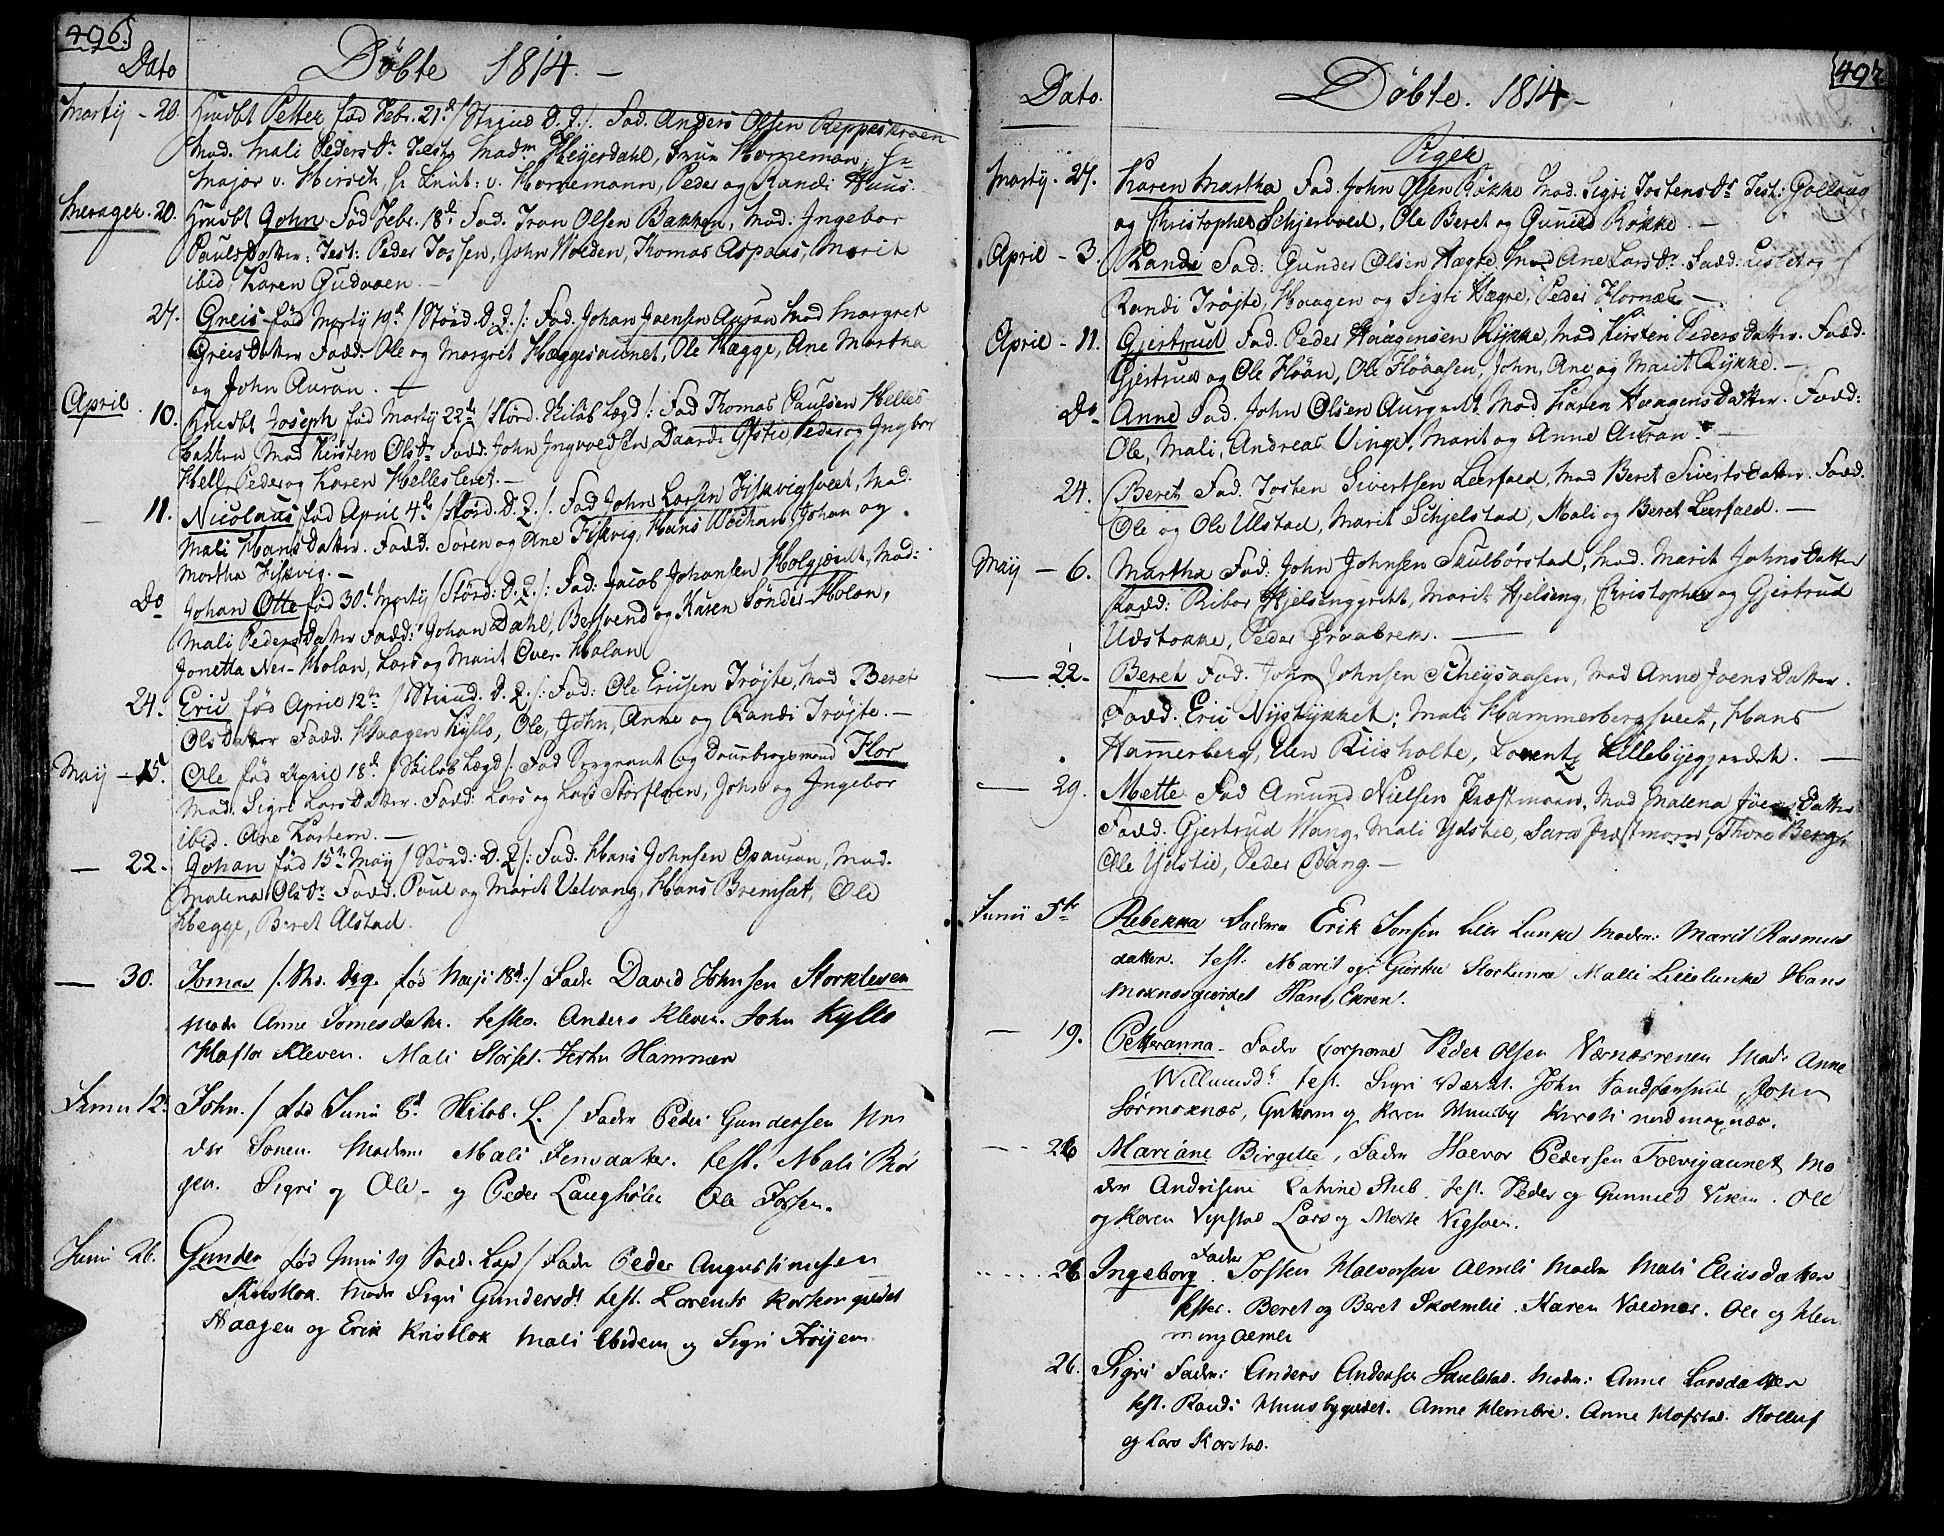 496.
Dato
Döbte 1814. —
Martij - 20. Hiembt Petter fød Febr. 21d /Stiriud D. Z./. Fad. Anders Olsen Reppeskroen
Mad. Mali PedersDr Test Madm Heyerdahl, Frue Horneman, Hr
Major v. Hirsch, Hr Leut: v. Hornemann, Peder og Randi Huus.
Meragei. 20. Hiembt John Fød Febr. 18d Fad. Iver Olsen Bakken, Mod: Ingebor
PaulsDatter: Test: Peder Jossen, John Wolden, Thomas Aspaas, Marit
ibid. Karen Gudaaen. —
27. Greis fød Martij 19d /Störd. D. Z./: Fad. Johan Joensen Auran Mod Margret
GreisDatter Fadd. Ole og Margret Heggesaunet, Ole Hægge, Ane Martha
og John Auran. —
April. 10. Hiembt Joseph fød Martij 22de /Störd. Skiløb Legd/: Fad Thomas Paulsen Helles
bakken Mod Kirsten OlsDr Fadd. John Ingvoldsen, Daarde Gjstie Peder og Ingbor
Hell, Peder og Karen Hellesleret. —
— 11. Nicolaus fød April 4de /Störd. D. Z./. Fad John Larsen Fiskvigsveet, Mod.
Mali HansDatter. Fadd. Soren og Ane Fiskvig, Hans Wodhan, Johan og
Martha Fiskvig. —
Do Johan Otte fød 30te Martij /Störd: D. Z./: Fad: Jacob Johansen Holgjerdet, Mod:
Mali PedersDatter Fadd: Johan Dahl, Bersvend og Karen Sönder-Holan,
Jonetta Ner-Holan, Lars og Marit Over-Holan
24. Eric fød April 12te /Stiriud. D. Z./: Fad: Ole Ericsen Tröjte, Mod Beret
OlsDatter Fadd. Haagen Kyllo, Ole, John, Anne og Randi Tröjte. —
Maij - 15. Ole fød April 18d /Skiløb Legd/: Fad Sergeant og Dannbrogsmand Flor
Mod. Sigri LarsDatter. Fadd: Lars og Lars Storfloren, John og Ingebor
ibid. Ane Kastem. —
— 22. Johan fød 15te Maij /Störd: D. Z/: Fad. Hans Johnsen Opauran, Mod.
Malena OlsDr Fadd. Paul og Marit Velvang, Hans Bremset, Ole
Hegge, Beret Alstad.
— 30. Tomas /. Drg. fød Maji 18d:/ Fadr David Johnsen Storkleven
Modr Anne Tomesdatr. testes. Anders Kleven. John Kyllo
Haftor Kleven. Mali Storset. Hammer
Junii 12. John. / fød Junii 8d. Skilob. L./ Fader Peder Gundersen
der Sonen. Moder Mali Jensdatter. test. Mali Bør
gen. Sigri og Ole - og Peder Laugholn Ole Jossen.
Junii 26. Gunder fød Junii 19 Legd/ Fader Peder Augustinusen
Kristlok. Moder Sigri Gundersdt test. Lorents
Haagen og Erik Kristlok Mali Ibidem og Sigri Tröijen

497.
Dato.
Döbte. 1814 —
Piger
Martij - 27. Karen Martha Fad. John Olsen Røkke Mod. Sigri JostensDr Test: Gollaug
og Christopher Schjervold, Ole Beret og Gunild Røkke. —
April - 3. Rande Fad: Gunder Olsen Hægre, Mod Ane LarsDr Fadd: Lisbet og
Randi Tröjte, Haagen og Sigri Hægre, Peder Hornæs. —
April - 11. Gjertrud Fad. Peder Haagensen Rykke, Mod Kirsten PedersDatter. Fadd.
Gjertrud og Ole Fløan, Ole Fløaasen, John, Ane og Marit Rykke. —
Do Anne Fad. John Olsen Aurgrett Mod Karen HaagensDatter. Fadd:
Ole, Mali, Andreas Vinge, Marit og Anne Auran. —
24. Beret Fad. Josten Sivertsen Leerfald, Mod Beret SivertsDatter. Fadd.
Ole og Ole Ulstad, Marit Schjelstad, Mali og Beret Leerfald. —
Maij - 6. Martha Fad: John Johnsen Skulbørstad, Mod. Marit JohnsDatter
Fadd: Ribor Hjelsenggrett, Marit Hjelseng, Christopher og Gjertrud
Udstokke, Peder Graabrek. —
— 22. Beret Fad. John Johnsen Schejsaasen, Mod Anne JoensDatter.
Fadd. Eric Nijstykket; Mali Hammerbergsveet, Hans
Hammerberg, Elen Riisholte, Lorentz Lillebijegjerdet. —
— 29. Mette Fad Amund Nielsen Præstmoen, Mod Malena JoensDatter
Fadd. Gjertrud Wang, Mali Ydstie, Sara Præstmoen, Thore Berg,
Ole Ydstie, Peder Bang. —
Junii 5te Rebekka Faderen Erik Jonsen Lille Lunke Moder: Marit Rasmus
datter. test. Marit og Giertru Storlunke Malli Lillelunke Hans
Moxnesgierdet Hans Ekren.
— 19. Petteranna. Fader Corporal Peder Olsen Værnæsrenen Mod: Anne
Willumsdt test. Sigri Værnt. John Sandfærhus John
Sørmoxnæs, Guttorm og Karen Muusby Kirsti nordmoxnæs.
— 26 Mariane Birgitte, Fader Halvor Pedersen Toevigaunet Mo
der Andrisine Catrine Stub. test. Peder og Gunnild Viken. Ole
og Karen Vipstad Lars og Merte Vigsaen.
..... 26 Ingeborg. Fader Josten Halvorsen Almli Moder Mali Eliasdatter
testes. Beret og Beret Skolmlie. Karen Valdnes. Ole og Hen
ning Almli
26. Sigri Fader: Anders Andersen Skulstad. Moder: Anne Larsdatter
test. Randi Muusbygierdet. Anne Hembre. Anne Hofstad. Kolluf
og Lars Korstad.